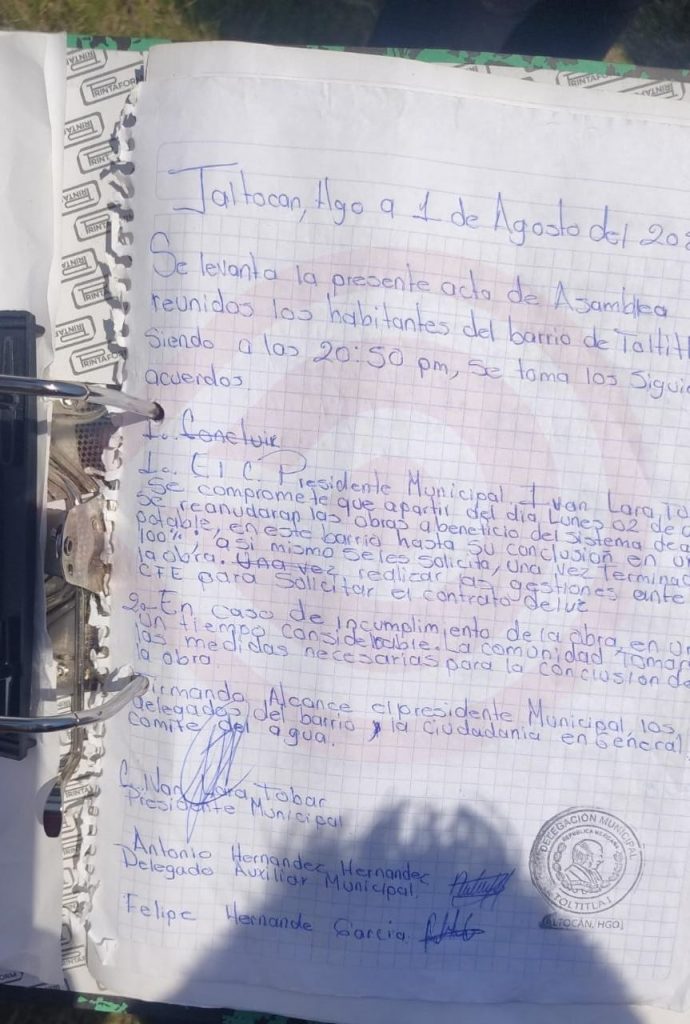 Jaltocan, Hgo a 1 de Agosto del 20
Se levanta la presente acta de Asamblea
reunidos los habitantes del barrio de Toltitl
Siendo a las 20:50 pm, se toma los siguie
acuerdos
1.. Concluir
1.. El C. Presidente Municipal. Ivan Lara To
se compromete que apartir del dia, Lunes 02 de
se reanudaran las obras a beneficio del sistema de a
potable, en este barrio hasta su conclusión en un
100%, asi mismo se les solicita, una vez termina
la obra. Una vez realizar las gestiones ante
CFE para solicitar el contrato de luz
2.- En caso de incumplimiento de la obra en un
un tiempo considerable. La comunidad tomar
las medidas necesarias para la conclusión de
la obra.
Firmando Alcance el presidente Municipal, los
delegados del barrio y la ciudadania en General
comite del agua.
C. Ivan Lara Tobar
Presidente Municipal
Antonio Hernandez Hernandez
Delegado Auxiliar Municipal
Felipe Hernande Garcia
DELEGACIÓN MUNICIPAL
REPUBLICA MEXICANA
TOLTITLA I
JALTOCÁN, HGO.
PRINTAFORM